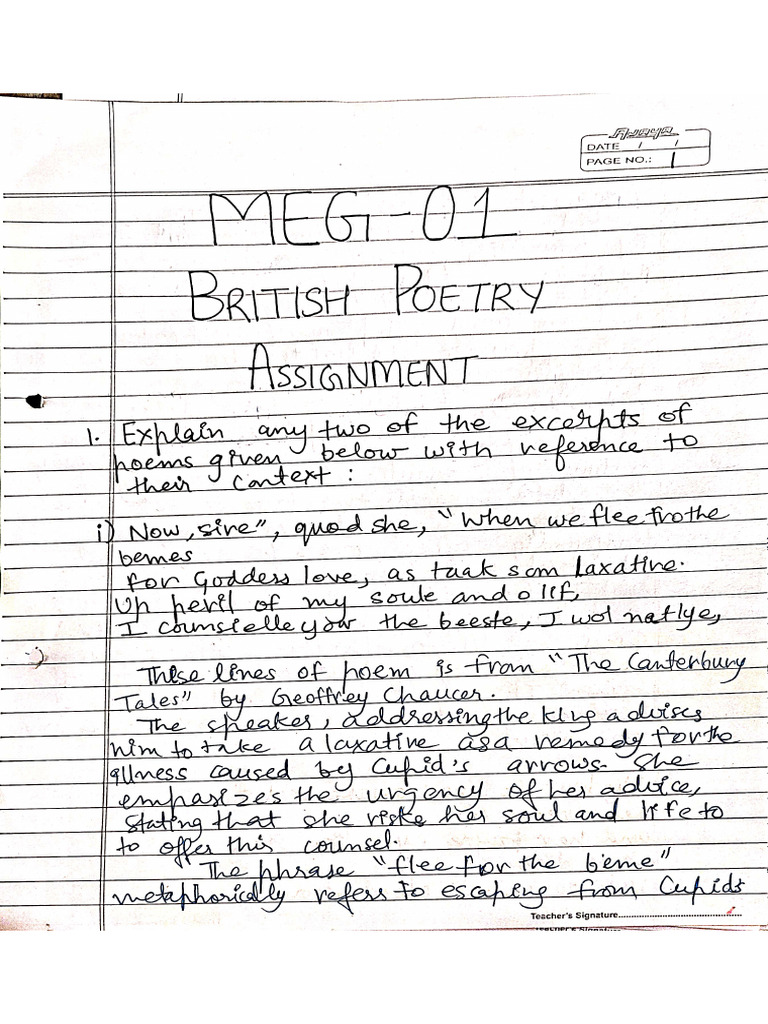 Ajaya
DATE / /
PAGE NO.: 1
MEG-01
BRITISH POETRY
ASSIGNMENT
1. Explain any two of the excerpts of
poems given below with reference to
their context :
i) Now, sire", quod she, "When we flee fro the
bemes
for Goddess love, as taak som laxative.
Up peril of my soule and o lif,
I counsielle yow the beeste, I wol nat lye,
These lines of poem is from "The Canterbury
Tales" by Geoffrey Chaucer.
The speaker, addressing the king advises
him to take a laxative as a remedy for the
illness caused by Cupid's arrows. She
emphasizes the urgency of her advice,
stating that she risks her soul and life to
to offer this counsel.
"The phrase "flee for the beme"
metaphorically refers to escaping from Cupids
Teacher's Signature